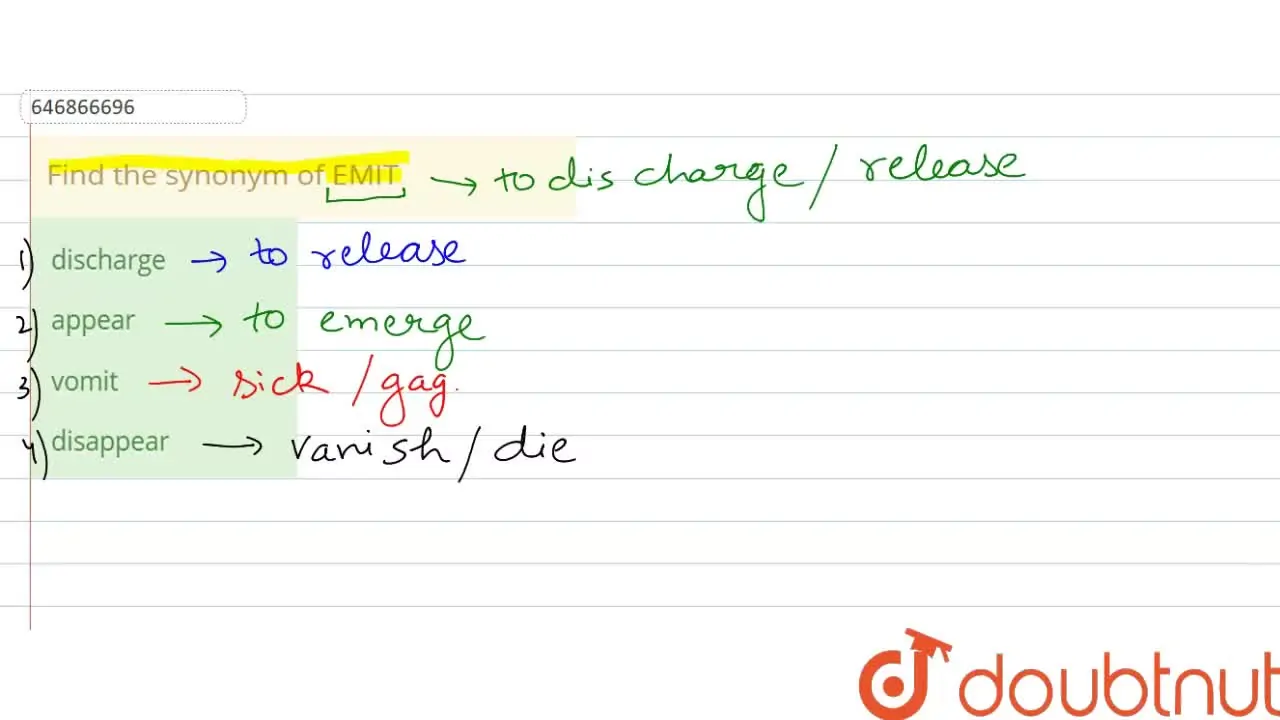 646866696
Find the synonym of EMIT → to discharge / release
1) discharge → to release
2) appear → to emerge
3) vomit → sick / gag.
4) disappear → vanish / die
doubtnut